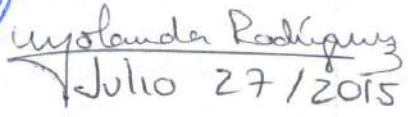 Yolanda Rodríguez
Julio 27/2015